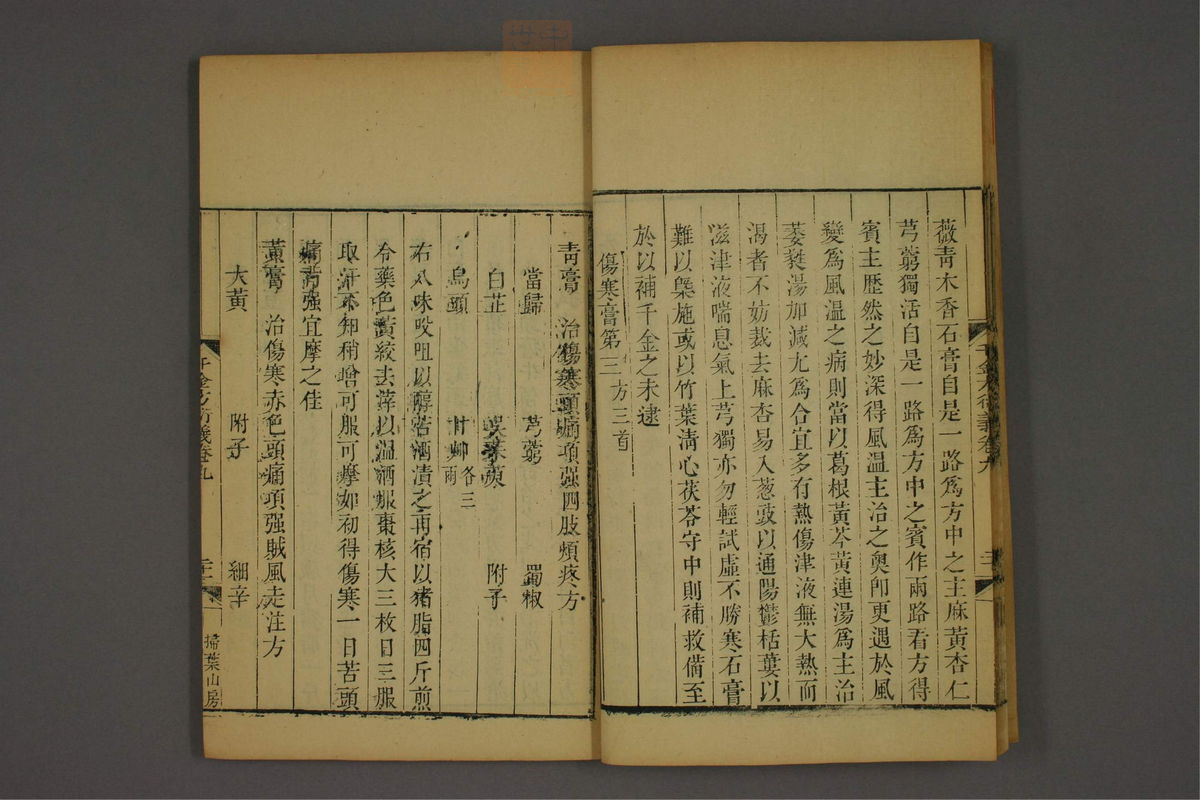 薇青木香石膏自是一路爲方中之主麻黃杏仁
芎藭獨活自是一路爲方中之賓作兩路看方得
賓主歷然之妙深得風温主治之奧卽更遇於風
變爲風温之病則當以葛根黃芩黃連湯爲主治
萎蕤湯加減尤爲合宜多有熱傷津液無大熱而
渴者不妨裁去麻杏易入葱豉以通陽鬱栝蔞以
滋津液喘息氣上芎獨亦勿輕試虛不勝寒石膏
難以槩施或以竹葉清心茯苓守中則補救備至
於以補千金之未逮
傷寒膏第三 方三首
青膏 治傷寒頭痛項强四肢煩疼方
當歸 芎藭 蜀椒
白芷 吳茱萸 附子
烏頭 甘草 各三兩
右八味㕮咀以醇苦酒漬之再宿以猪脂四斤煎
令藥色黃絞去滓以温酒服棗核大三枚日三服
取汗不知稍增可服可摩如初得傷寒一日苦頭
痛背强宜摩之佳
黃膏 治傷寒赤色頭痛項强賊風走注方
大黃 附子 細辛
千金方衍義卷九
掃葉山房